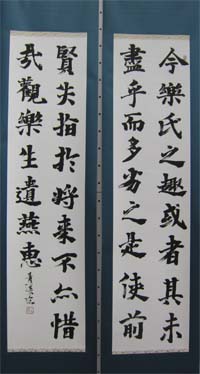 今樂氏之趣或者其未
盡乎而多劣之是使前
賢失指於將來不亦惜
哉觀樂生遺燕惠